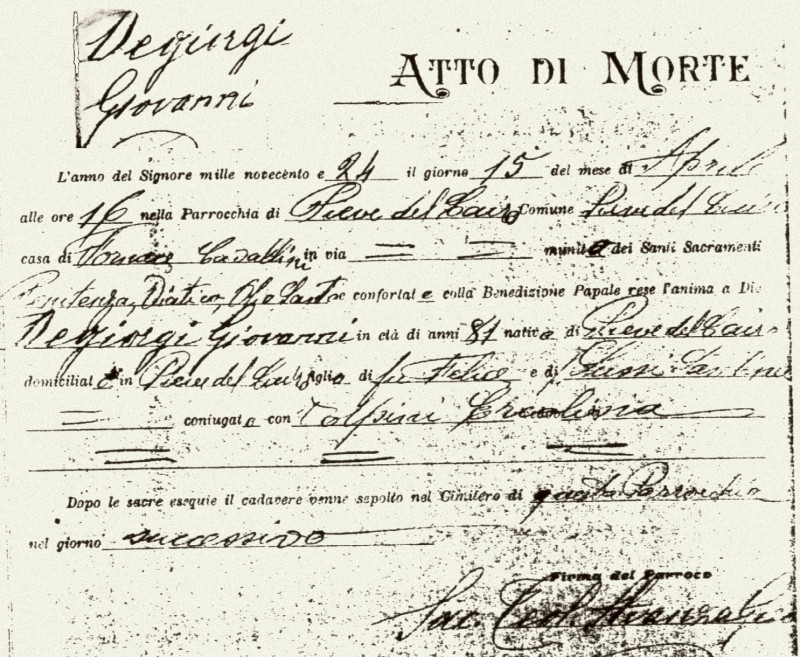 Degiorgi
Giovanni
ATTO DI MORTE
L'anno del Signore mille novecento e 24 il giorno 15 del mese di Aprile
alle ore 16 nella Parrocchia di Pieve del Cairo Comune Pieve del Cairo
casa di Cavallini in via = = munito dei Santi Sacramenti
Penitenza, Viatico, Olio Santo e confortato e colla Benedizione Papale rese l'anima a Dio
Degiorgi Giovanni in età di anni 81 nativo di Pieve del Cairo
domiciliato in Pieve del Cairo figlio di fu Felice e di
= coniugato con Volpini Ercolina
= = =
Dopo le sacre esequie il cadavere venne sepolto nel Cimitero di questa Parrocchia
nel giorno successivo
Firma del Parroco
Sac.